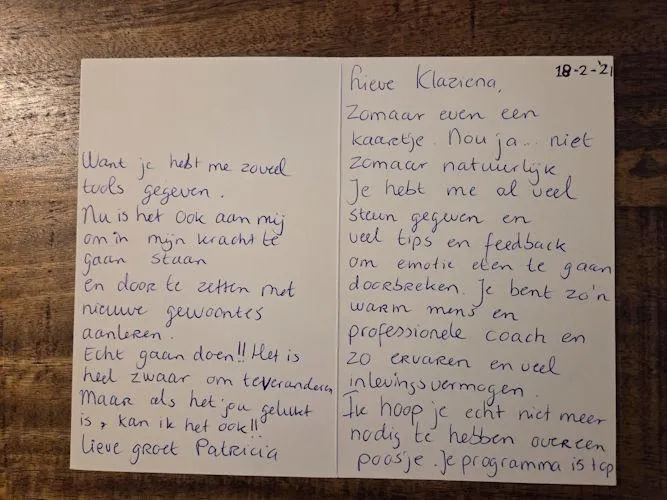 18-2-'21
Lieve Klaziena,
Zomaar even een
kaartje. Nou ja... niet
zomaar natuurlijk
Je hebt me al veel
steun gegeven en
veel tips en feedback
om emotie eten te gaan
doorbreken. Je bent zo'n
warm mens en
professionele coach en
zo ervaren en veel
inlevingsvermogen.
Ik hoop je echt niet meer
nodig te hebben over een
poosje. Je programma is top
Want je hebt me zoveel
tools gegeven.
Nu is het ook aan mij
om in mijn kracht te
gaan staan
en door te zetten met
nieuwe gewoontes
aanleren.
Echt gaan doen!! Het is
heel zwaar om te veranderen
Maar als het jou gelukt
is, kan ik het ook!!
Lieve groet Patricia